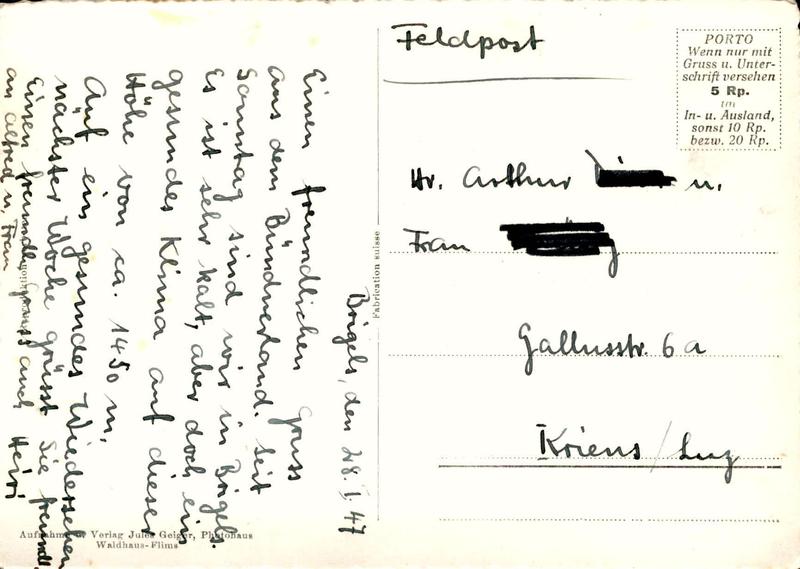 Brigels, den 28.I.47
Einen freundlichen Gruss
aus dem Bündnerland. Seit
Sonntag sind wir in Brigels.
Es ist sehr kalt, aber doch ein
gesundes Klima auf dieser
Höhe von ca. 1450 m.
Auf ein gesundes Wiedersehen
nächster Woche grüsst Sie freundl.
Heiri
Einen freundl. Gruss auch
an Alfred u. Frau
Aufnahme u. Verlag Jules Geiger, Photohaus
Waldhaus-Flims
Fabrication suisse
Feldpost
PORTO
Wenn nur mit
Gruss u. Unter-
schrift versehen
5 Rp.
im
In- u. Ausland,
sonst 10 Rp.
bezw. 20 Rp.
Hr. Arthur u.
Frau
Gallusstr. 6a
Kriens / Luz